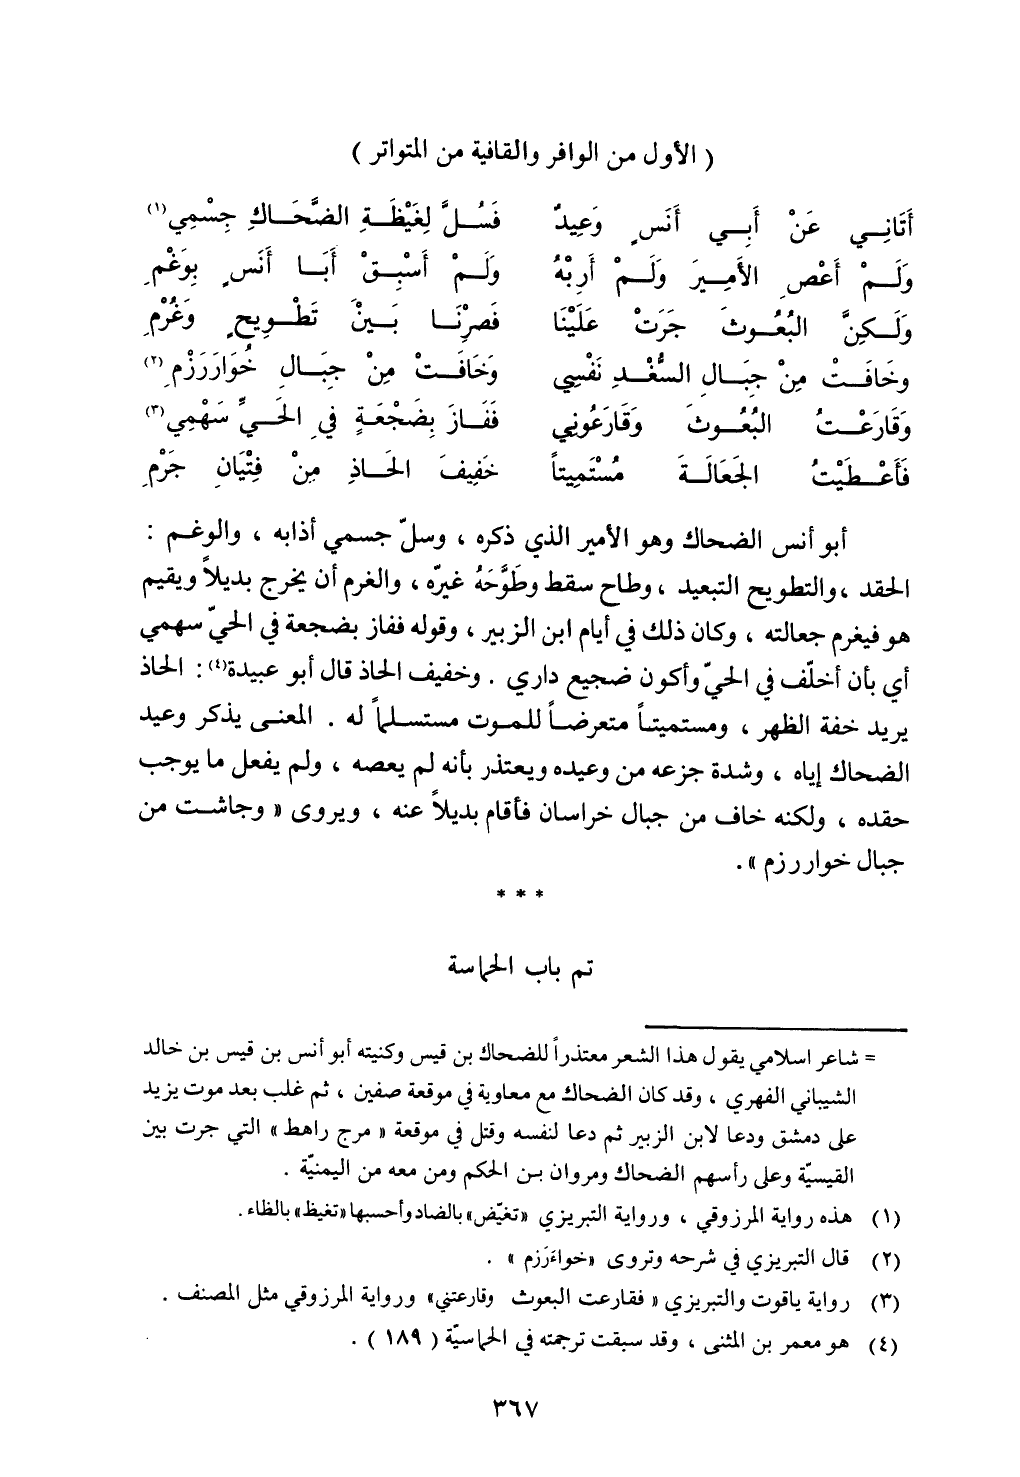 ( الأول من الوافر والقافية من المتواتر )
أَتَانِي عَنْ أَبِي أَنَسٍ وَعِيدٌ فَسُلَّ لِغَيْظَةِ الضَّحَاكِ جِسْمِي(١)
وَلَمْ أَعْصِ الأَمِيرَ وَلَمْ أَرِبْهُ وَلَمْ أَسْبِقْ أَبَا أَنَسٍ بِوَغْمِ
وَلَكِنَّ البُعُوثَ جَرَتْ عَلَيْنَا فَصِرْنَا بَيْنَ تَطْوِيحٍ وَغُرْمِ
وَخَافَتْ مِنْ جِبَالِ السُّغْدِ نَفْسِي وَخَافَتْ مِنْ جِبَالِ خُوَارَرَزْمِ(٢)
وَقَارَعْتُ البُعُوثَ وَقَارَعُونِي فَفَازَ بِضَجْعَةٍ فِي الحَيِّ سَهْمِي(٣)
فَأَعْطَيْتُ الجَعَالَةَ مُسْتَمِيتاً خَفِيفَ الحَاذِ مِنْ فِتْيَانِ جَرْمِ
أبو أنس الضحاك وهو الأمير الذي ذكره ، وسلّ جسمي أذابه ، والوغم :
الحقد ، والتطويح التبعيد ، وطاح سقط وطَوَّحَهُ غيرّه ، والغرم أن يخرج بديلاً ويقيم
هو فيغرم جعالته ، وكان ذلك في أيام ابن الزبير ، وقوله ففاز بضجعة في الحيّ سهمي
أي بأن أخلّف في الحيّ وأكون ضجيع داري . وخفيف الحاذ قال أبو عبيدة(٤) : الحاذ
يريد خفة الظهر ، ومستميتاً متعرضاً للموت مستسلماً له . المعنى يذكر وعيد
الضحاك إياه ، وشدة جزعه من وعيده ويعتذر بأنه لم يعصه ، ولم يفعل ما يوجب
حقده ، ولكنه خاف من جبال خراسان فأقام بديلاً عنه ، ويروى « وجاشت من
جبال خواررزم » .
* * *
تم باب الحماسة
= شاعر اسلامي يقول هذا الشعر معتذراً للضحاك بن قيس وكنيته أبو أنس بن قيس بن خالد
الشيباني الفهري ، وقد كان الضحاك مع معاوية في موقعة صفين ، ثم غلب بعد موت يزيد
على دمشق ودعا لابن الزبير ثم دعا لنفسه وقتل في موقعة « مرج راهط » التي جرت بين
القيسيّة وعلى رأسهم الضحاك ومروان بن الحكم ومن معه من اليمنيّة .
(١) هذه رواية المرزوقي ، ورواية التبريزي «تغيّض» بالضاد وأحسبها «تغيظ» بالظاء .
(٢) قال التبريزي في شرحه وتروى «خواءَرَزم » .
(٣) رواية ياقوت والتبريزي « فقارعت البعوث وقارعتني» ورواية المرزوقي مثل المصنف .
(٤) هو معمر بن المثنى ، وقد سبقت ترجمته في الحماسيّة ( ١٨٩ ) .
٣٦٧